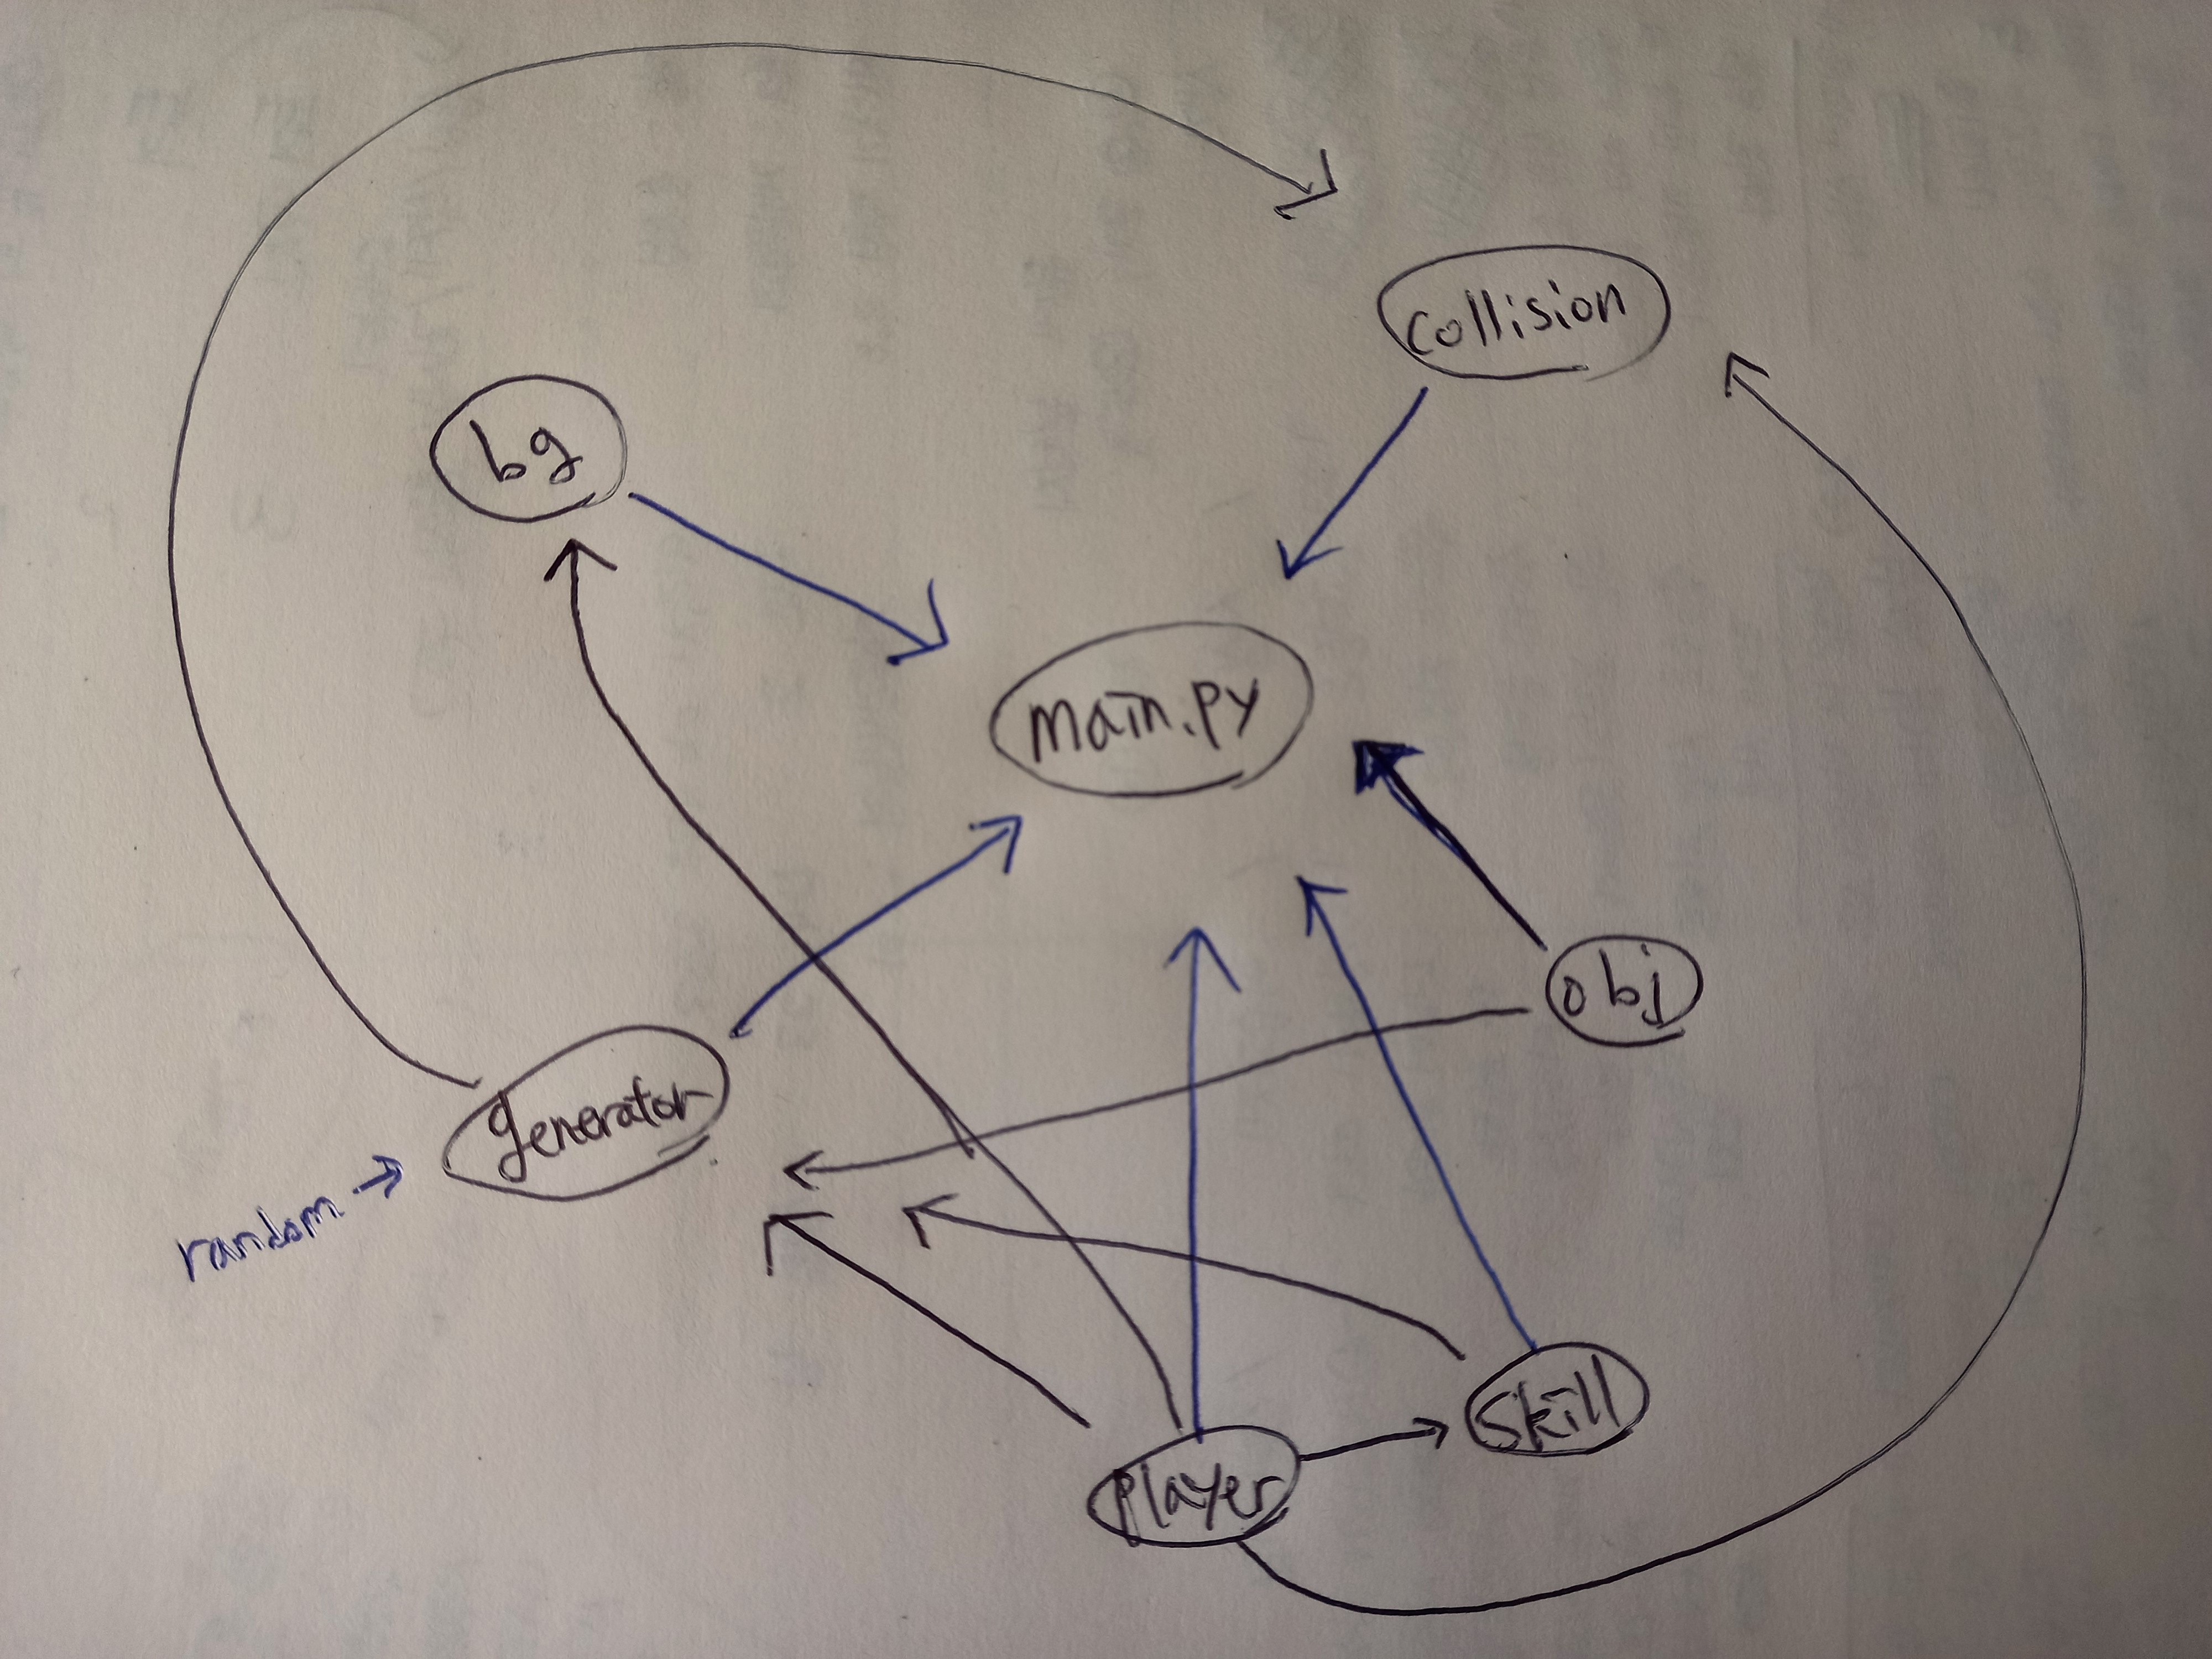 collision
bg
main.py
obj
generator
random →
skill
player